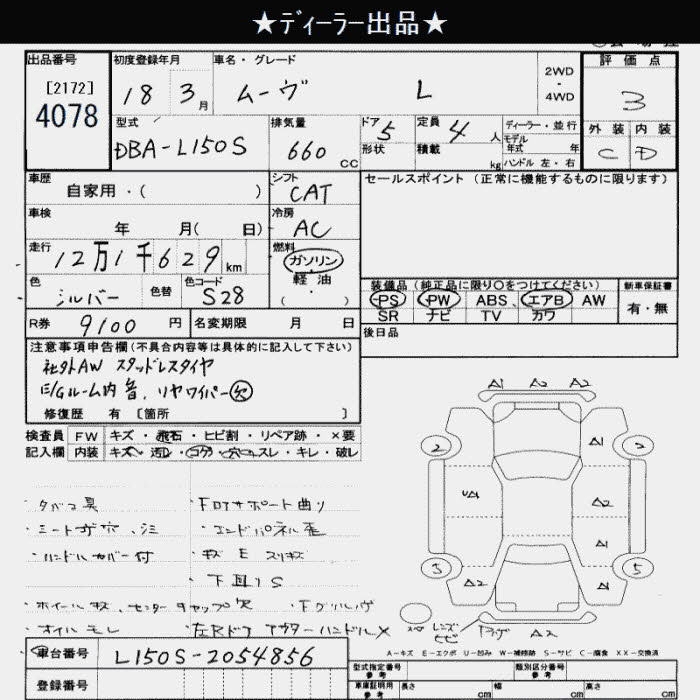 ★ディーラー出品★
出品番号 初度登録年月 車名・グレード 評価点
[2172] 4078
18 3月 ムーヴ L 2WD・4WD 3
型式 排気量 ドア 5 定員 4人 ディーラー・並行 外装 内装
DBA-L150S 660cc 形状 積載 kg モデル年式 年 ハンドル 左・右 C D
車歴 シフト セールスポイント(正常に機能するものに限ります)
自家用・( ) CAT
車検 冷房
年 月( 日) AC
走行 燃料
12万1千629km ガソリン・軽油・( )
色 色替 色コード 装備品(純正品に限り○をつけてください) 新車保証書
シルバー S28 PS PW ABS エアB AW 有・無
SR ナビ TV カワ
R券 9100円 名変期限 月 日 後日品
注意事項申告欄(不具合内容等は具体的に記入して下さい)
社外AW スタッドレスタイヤ
E/Gルーム内音、リヤワイパー欠
修復歴 有 [箇所 ]
A1 A2 A2
検査員 FW キズ・飛石・ヒビ割・リペア跡・×要
記入欄 内装 キズ・汚レ・コゲ・穴・スレ・キレ・破レ
2 A1
UA1 A2
A1
3 A2 A1 5
・タバコ臭 ・F口アサポート曲り
・シート コゲ穴、シミ ・エンドパネル歪
・ハンドルカバー付 ・キズ E スリキズ
・下廻りS
・ホイールキズ、センターキャップ欠 ・Fグリル
・オイルモレ ・左Rドアアウターハンドル×
レンズヒビ A2
A-キズ E-エクボ U-凹み W-補修跡 S-サビ C-腐食 XX-交換済
車台番号 L150S-2054856
登録番号
型式指定番号 参考 類別区分番号 参考
車庫証明用 参考 長さ cm 幅 cm 高さ cm